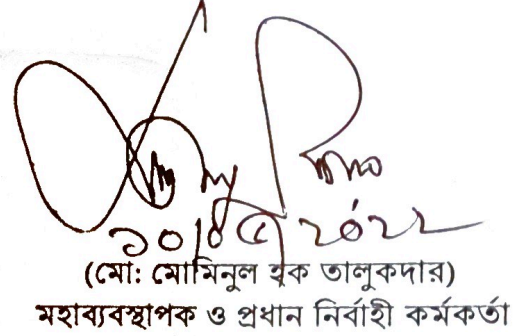 ১০/৫/২০২২
(মো: মোমিনুল হক তালুকদার)
মহাব্যবস্থাপক ও প্রধান নির্বাহী কর্মকর্তা